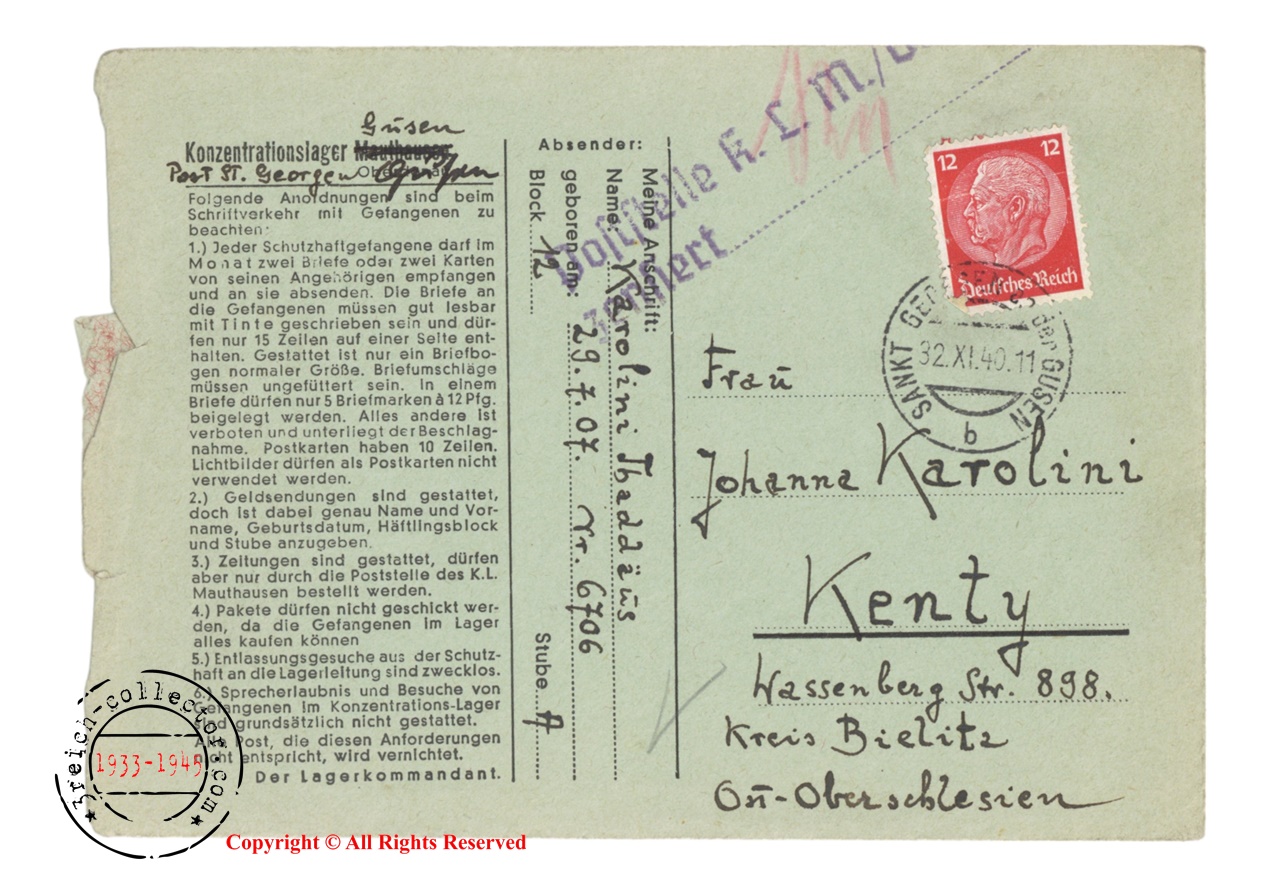 Gusen
Konzentrationslager Mauthausen
Post St. Georgen Gusen
Folgende Anordnungen sind beim
Schriftverkehr mit Gefangenen zu
beachten:
1.) Jeder Schutzhaftgefangene darf im
Monat zwei Briefe oder zwei Karten
von seinen Angehörigen empfangen
und an sie absenden. Die Briefe an
die Gefangenen müssen gut lesbar
mit Tinte geschrieben sein und dür-
fen nur 15 Zeilen auf einer Seite ent-
halten. Gestattet ist nur ein Briefbo-
gen normaler Größe. Briefumschläge
müssen ungefüttert sein. In einem
Briefe dürfen nur 5 Briefmarken à 12 Pfg.
beigelegt werden. Alles andere ist
verboten und unterliegt der Beschlag-
nahme. Postkarten haben 10 Zeilen.
Lichtbilder dürfen als Postkarten nicht
verwendet werden.
2.) Geldsendungen sind gestattet,
doch ist dabei genau Name und Vor-
name, Geburtsdatum, Häftlingsblock
und Stube anzugeben.
3.) Zeitungen sind gestattet, dürfen
aber nur durch die Poststelle des K.L.
Mauthausen bestellt werden.
4.) Pakete dürfen nicht geschickt wer-
den, da die Gefangenen im Lager
alles kaufen können
5.) Entlassungsgesuche aus der Schutz-
haft an die Lagerleitung sind zwecklos.
6.) Sprecherlaubnis und Besuche von
Gefangenen im Konzentrations-Lager
sind grundsätzlich nicht gestattet.
Alle Post, die diesen Anforderungen
nicht entspricht, wird vernichtet.
Der Lagerkommandant.
Absender:
Meine Anschrift:
Name: Karolini Thaddäus
geboren am: 29.7.07. Nr. 6706
Block 12 Stube A
Poststelle K. L. M./
zensiert
12 12
Deutsches Reich
SANKT GEORGEN a.d. GUSEN
XI.40.11
b
Frau
Johanna Karolini
Kenty
Wassenberg Str. 898.
Kreis Bielitz
Ost-Oberschlesien
3reich-collector.com
1933-1945
Copyright © All Rights Reserved